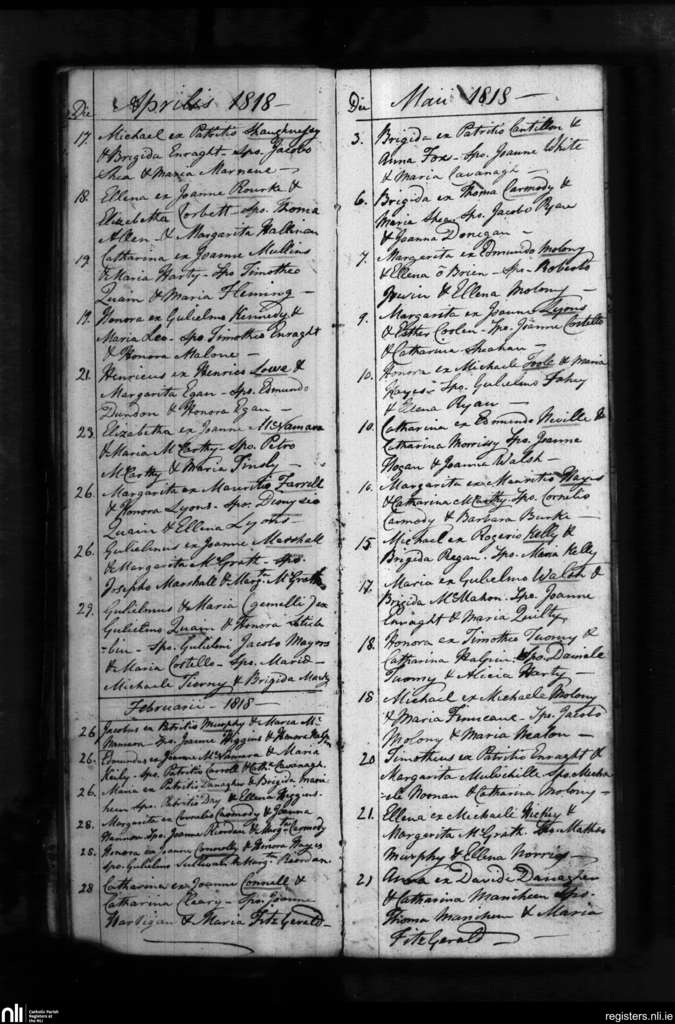 Die Aprilis 1818 –
17. Michael ex Patritio Shaughnesey
& Brigida Enraght – Spo. Jacobo
Shea & Maria Marnane –
18. Ellena ex Joanne Rourke &
Elizabetha Corbett – Spo. Thoma
Allen & Margarita Hallinan
19. Catharina ex Joanne Mullins
& Maria Harty – Spo Timotheo
Quain & Maria Fleming –
19. Honora ex Gulielmo Kennedy &
Maria Leo – Spo Timotheo Enraght
& Honora Malone –
21. Henricus ex Henrico Lowe &
Margarita Egan – Spo. Edmundo
Dundon & Honora Egan –
23. Elizabetha ex Joanne McNamara
& Maria McCarthy – Spo. Petro
McCarthy & Maria Tinsly –
26. Margarita ex Mauritio Farrell
& Honora Lyons – Spo. Dionysio
Quain & Ellena Lyons –
26. Gulielmus ex Joanne Marshall
& Margarita McGrath – Spo.
Josepho Marshall & Margta McGrath
29. Gulielmus & Maria (gemelli) ex
Gulielmo Quain & Honora
Spo. Gulielmi Jacobo Mayors
& Maria Costello – Spo. Mariae
Michaele Tierny & Brigida
Februarii – 1818 –
26 Jacobus ex Patritio Murphy & Maria Mc
Namara Spo. Joanne Higgins & Honora
26. Edmundus ex Joanne McNamara & Maria
Spo. Patritio Carroll & Catha Cavanagh
26. Maria ex Patritio Danagher & Brigida
Spo. Patritio Day & Ellena Higgins
28. Margarita ex Cornelio Carmody & Joanna
Hannon Spo. Joanne Riordan & Margta Carmody
28. Honora ex Joanne Connolly & Honora Hayes
Spo. Gulielmo Sullivan & Margta Reordan
28 Catharina ex Joanne Connell &
Catharina Cleary – Spo. Joanne
Hartigan & Maria FitzGerald –
Die Maii 1818 –
3. Brigida ex Patritio Cantillon &
Anna Fox – Spo. Joanne White
& Maria Cavanagh –
6. Brigida ex Thoma Carmody &
Maria Shea Spo. Jacobo Ryan
& Joanna Donegan –
7. Margarita ex Edmundo Molony
& Ellena ô Brien – Spo – Roberto
& Ellena Molony –
9. Margarita ex Joanne Lyons
& Esther Coolen – Spo. Joanne Costello
& Catharina Sheahan –
10. Honora ex Michaele Toole & Maria
Hayes – Spo. Gulielmo Fahey
& Elena Ryan –
10. Catharina ex Edmundo Neville &
Catharina Morrissy Spo. Joanne
Hogan & Joanna Walsh –
10. Margarita ex Mauritio Hayes
& Catharina McCarthy – Spo. Cornelio
Carmody & Barbara Burke –
15. Michael ex Rogerio Kelly &
Brigida Regan – Spo. Maria Kelly
17. Maria ex Gulielmo Walsh &
Brigida McMahon. Spo. Joanne
Enraght & Maria Quilty
18. Honora ex Timotheo Tuomy &
Catharina Halpin. Spo. Daniele
Tuomy & Alicia Harty –
18 Michael ex Michaele Molony
& Maria Finucane – Spo. Jacobo
Molony & Maria Nealon –
20 Timotheus ex Patritio Enraght &
Margarita Mulvihille Spo. Micha
ele Noonan & Catharina Molony –
21. Ellena ex Michaele Hickey &
Margarita McGrath. Spo. Mattheo
Murphy & Ellena Norris –
21 Anna ex Davide Danagher
& Catharina Manihen Spo.
Thoma Manihen & Maria
FitzGerald –
nli Catholic Parish
Registers at
the NLI
registers.nli.ie